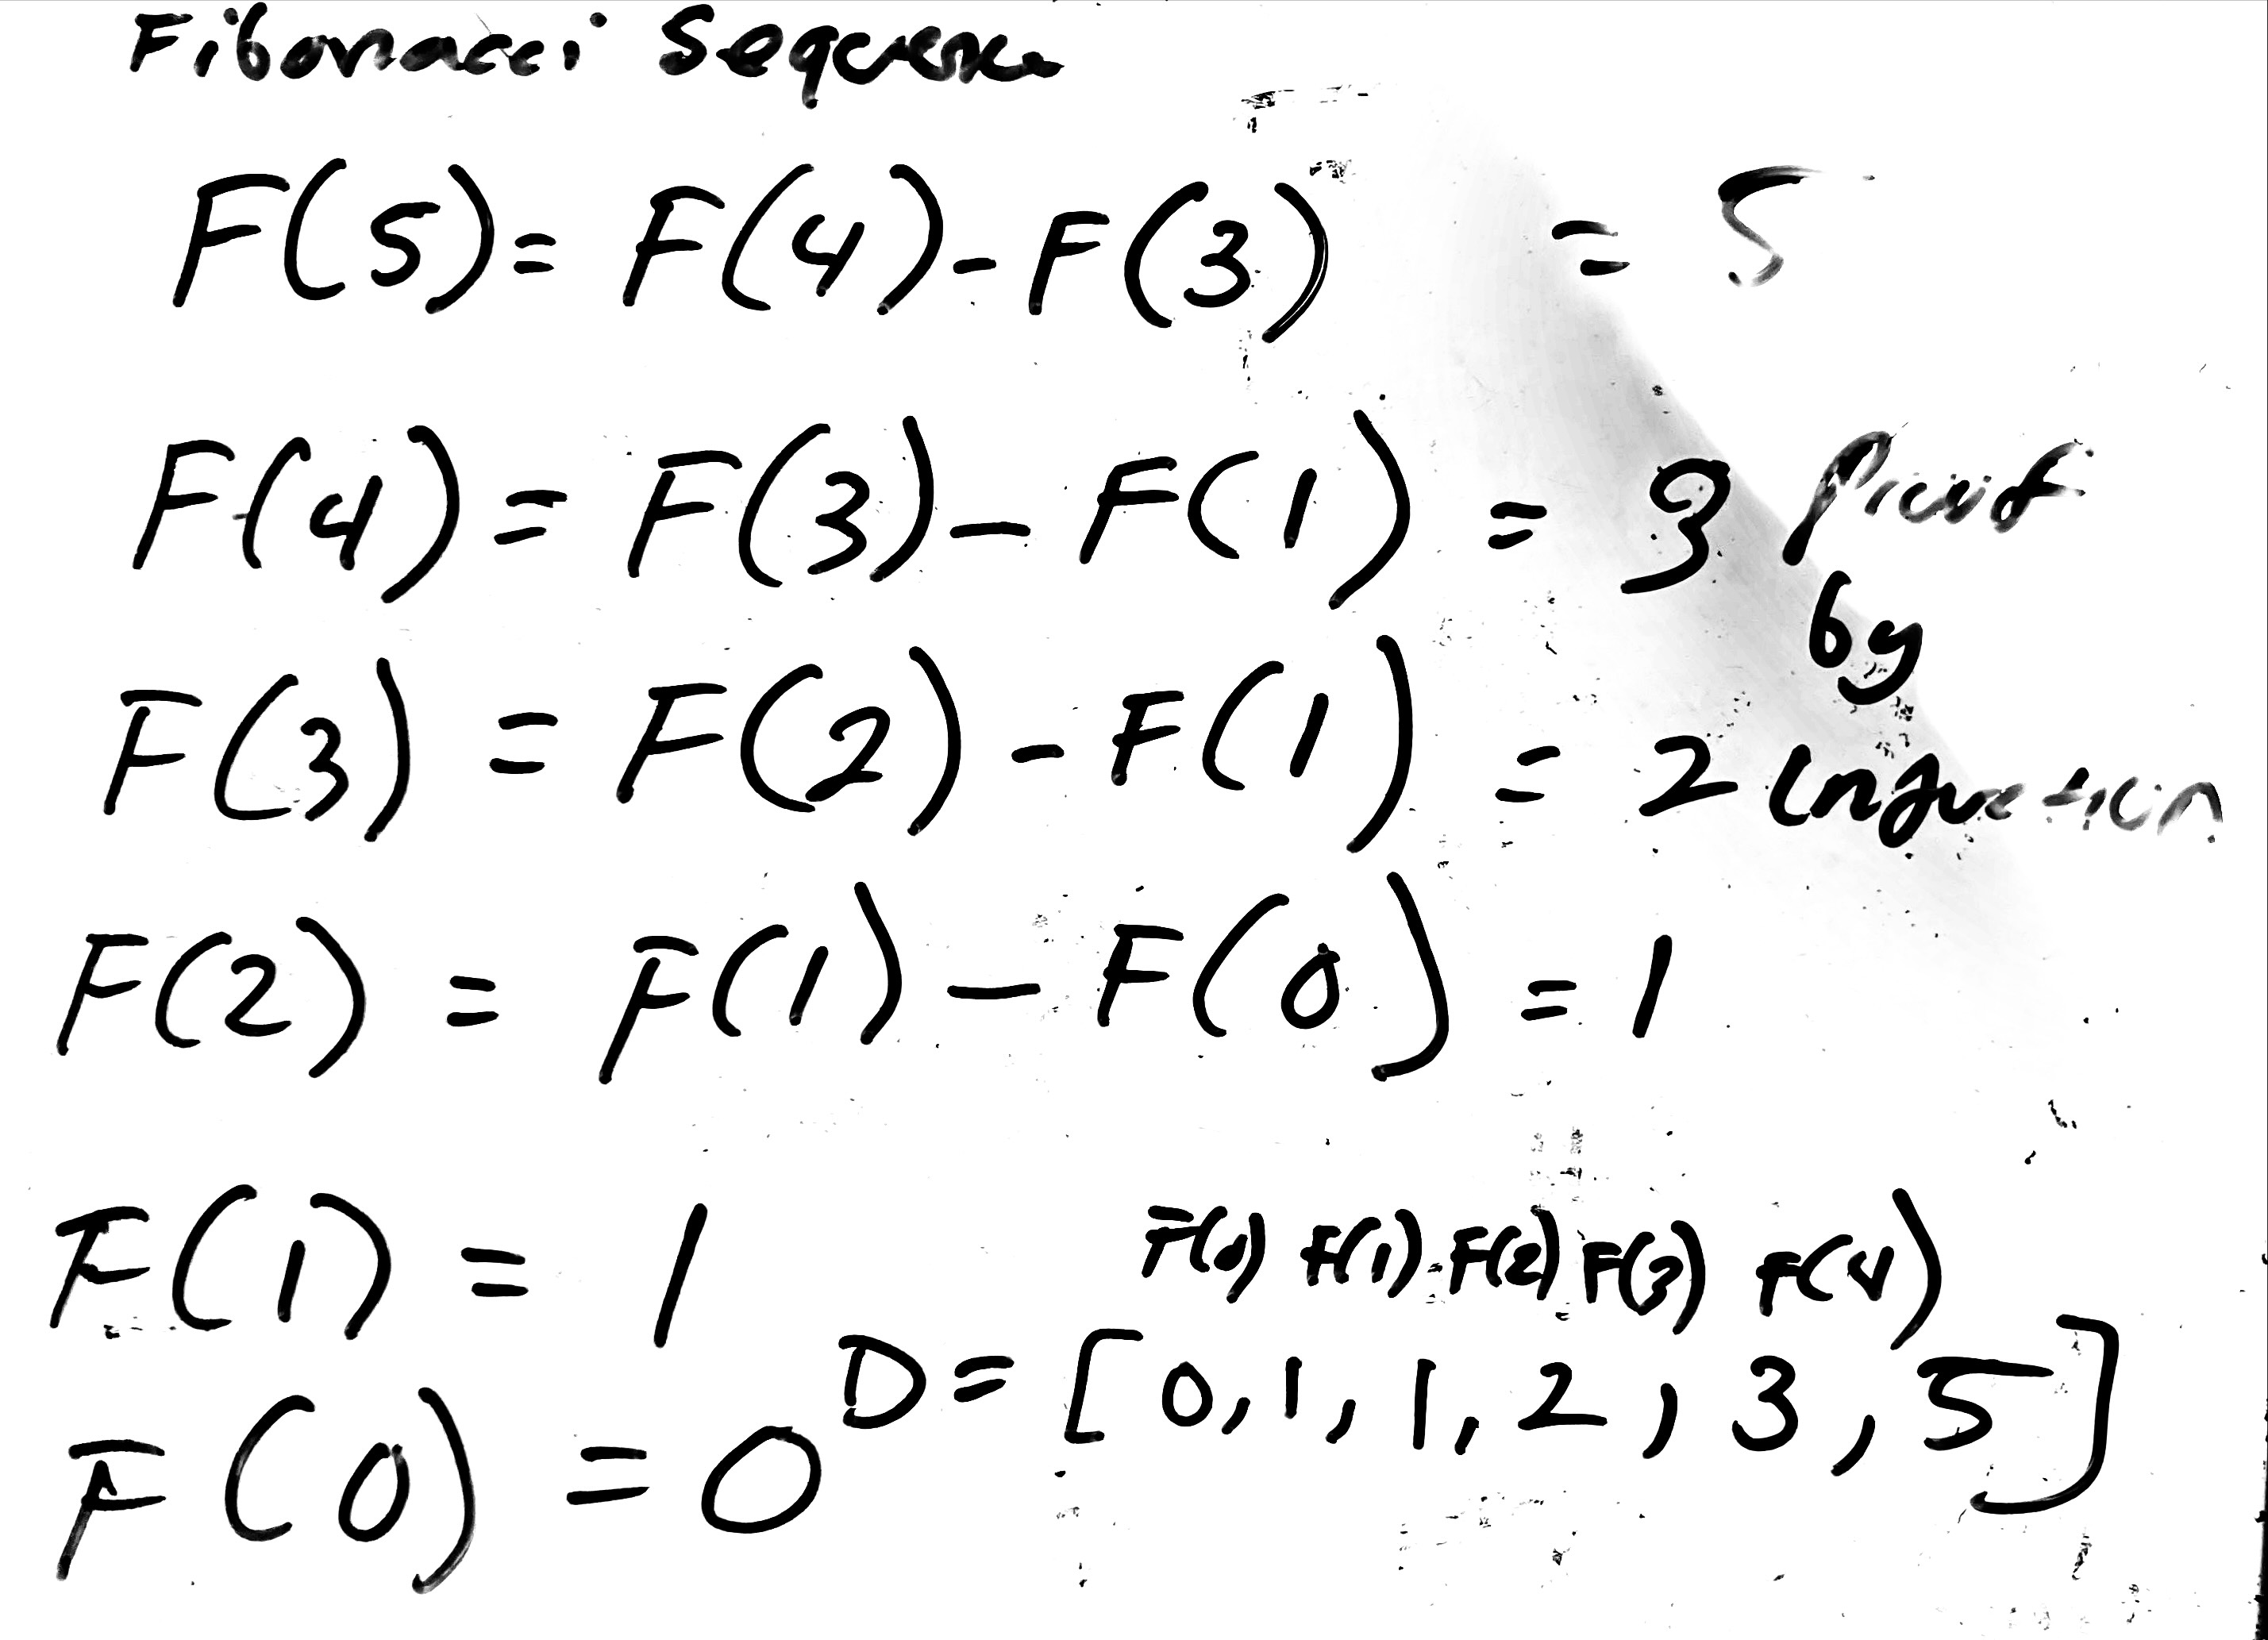 Fibonacci Sequence
F(5) = F(4) - F(3) = 5
F(4) = F(3) - F(1) = 3 Proof
by
F(3) = F(2) - F(1) = 2 induction
F(2) = F(1) - F(0) = 1
F(1) = 1
F(0) F(1) F(2) F(3) F(4)
D = [0, 1, 1, 2, 3, 5]
F(0) = 0